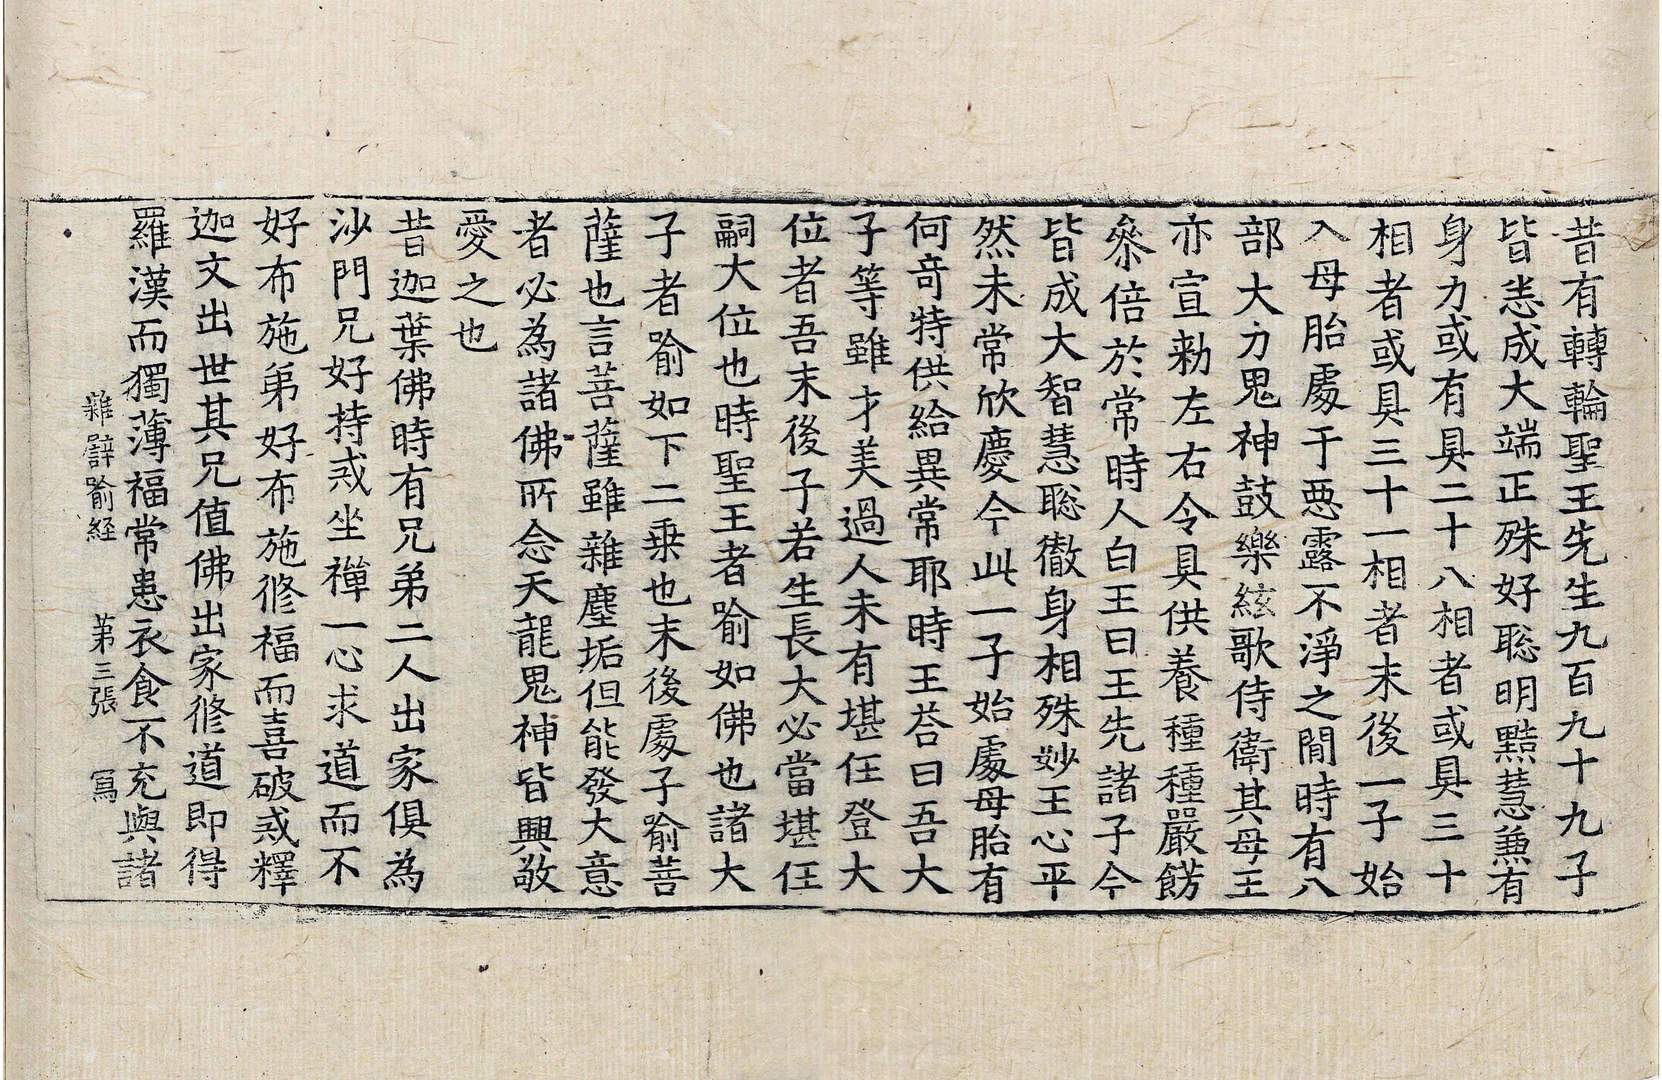 昔有轉輪聖王先生九百九十九子
皆悉成大端正殊好聡明黠慧兼有
身力或有具二十八相者或具三十
相者或具三十一相者末後一子始
入母胎處于惡露不淨之閒時有八
部大力鬼神鼓樂絃歌侍衛其母王
亦宣勑左右令具供養種種嚴餝
叅倍於常時人白王曰王先諸子今
皆成大智慧聡徹身相殊妙王心平
然未常欣慶今此一子始處母胎有
何竒特供給異常耶時王荅曰吾大
子等雖才美過人未有堪任登大
位者吾末後子若生長大必當堪任
嗣大位也時聖王者喻如佛也諸大
子者喻如下二乗也末後處子喻菩
薩也言菩薩雖雜塵垢但能發大意
者必為諸佛所念天龍鬼神皆興敬
愛之也
昔迦葉佛時有兄弟二人出家俱為
沙門兄好持戒坐禪一心求道而不
好布施弟好布施修福而喜破戒釋
迦文出世其兄值佛出家修道即得
羅漢而獨薄福常患衣食不充與諸
雜譬喻経 第三張 寫